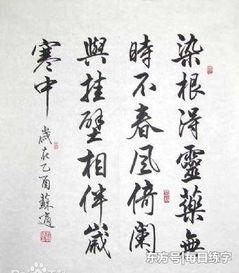 染根得靈藥無
時不春風倚闌
與挂壁相伴歲
寒中
歲在乙酉蘇適
东方号/每日练字